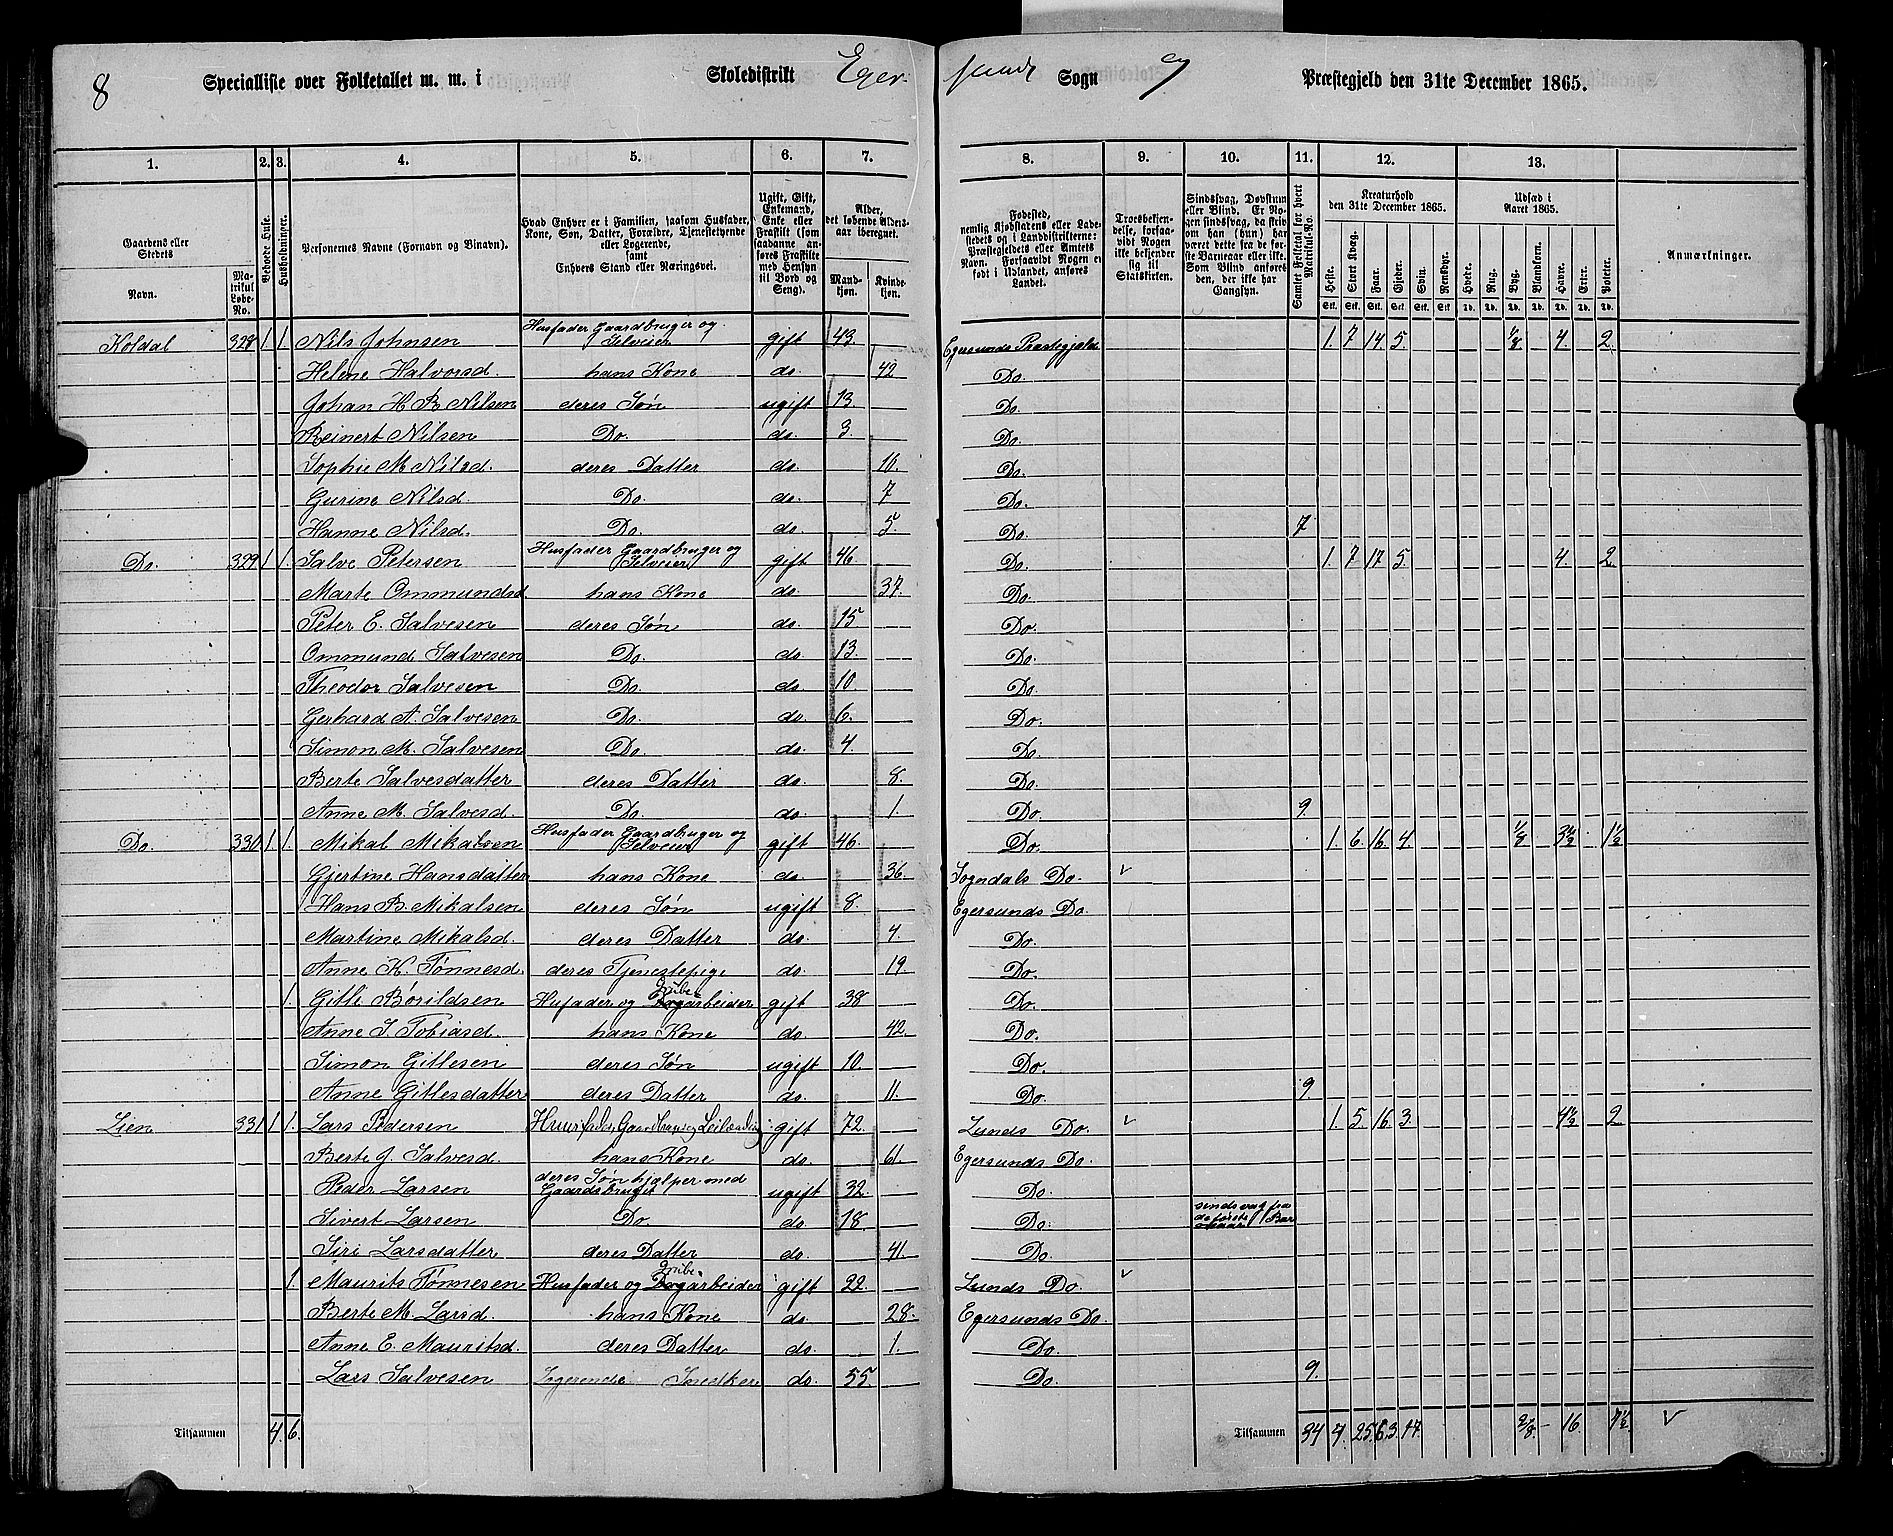 8 Specialliste over Folketallet m. m. i Skoledistrikt Eger-sunds Sogn og Præstegjeld den 31te December 1865.
1. 2. 3. 4. 5. 6. 7. 8. 9. 10. 11. 12. 13.
Gaardens eller Stedets
Navn.
Matrikul Løbe-No.
Beboede Huse.
Husholdninger.
Personernes Navne (Fornavn og Binavn).
Hvad Enhver er i Familien, saasom Husfader, Kone, Søn, Datter, Forældre, Tjenestetyende eller Logerende, samt Enhvers Stand eller Næringsvei.
Ugift, Gift, Enkemand, Enke eller Fraskilt (som saadanne anføres Fraskilte med Hensyn til Bord og Seng).
Alder, det løbende Alders-aar iberegnet.
Mand-kjøn. Kvinde-kjøn.
Fødested, nemlig Kjøbstadens eller Ladestedets og i Landdistrikterne: Præstegjeldets eller Amtets Navn. Forsaavidt Nogen er født i Udlandet, anføres Landet.
Troesbekjendelse, forsaavidt Nogen ikke bekjender sig til Statskirken.
Sindssvag, Døvstum eller Blind. Er Nogen sindssvag, da skriv om han (hun) har været dette fra de første Barneaar eller ikke. Som Blind anføres den, der ikke har Gangsyn.
Samlet Folketal for hvert Matrikul-No.
Kreaturhold den 31te December 1865.
Heste. Stort Kvæg. Faar. Gjeder. Svin. Rensdyr.
Udsæd i Aaret 1865.
Hvede. Rug. Byg. Blandkorn. Havre. Erter. Poteter.
Anmærkninger.
Koldal 328 1 1. Nils Johnsen Husfader Gaardbruger og Selveier gift 43. Egersunds Præstegjeld 1. 7 14. 5. 1/8 4. 2.
Helene Halvorsd. hans Kone do. 42 Do.
Johan H. B. Nilsen deres Søn ugift 13. Do.
Reinert Nilsen Do. do. 3. Do.
Sophie M. Nilsd. deres Datter do. 10. Do.
Gurine Nilsd. Do. do. 7 Do.
Hanne Nilsd. Do. do. 5. Do. 7
Do. 329 1 1. Salve Petersen Husfader Gaardbruger og Selveier gift 46. Do. 1. 7 17. 5. 4. 2.
Marte Ommundsd. hans Kone do. 37. Do.
Peter E. Salvesen deres Søn do. 15 Do.
Ommund Salvesen Do. do. 13. Do.
Theodor Salvesen Do. do. 10. Do.
Gerhard A. Salvesen Do. do. 6. Do.
Simon M. Salvesen Do. do. 4 Do.
Berte Salvesdatter deres Datter do. 8. Do.
Anne M. Salvesd. Do. do. 1. Do. 9.
Do. 330 1 1. Mikal Mikalsen Husfader Gaardbruger og Selveier gift 46. Do. 1. 6. 16. 4 1/8 3 1/2 1 1/2
Gjertine Hansdatter hans Kone do. 36. Sogndals Do.
Hans B. Mikalsen deres Søn ugift 8. Egersunds Do.
Martine Mikalsd. deres Datter do. 4. Do.
Anne K. Tønnesd. deres Tjenestepige do. 19. Do.
1. Gitle Børildsen Husfader og Grube-Dagarbeider gift 38 Do.
Anne S. Tobiasd. hans Kone do. 42. Do.
Simon Gitlesen deres Søn ugift 10. Do.
Anne Gitlesdatter deres Datter do. 11. Do. 9
Lien 331 1 1. Lars Pedersen Huusfader, Gaardbruger Leilænding gift 72. Lunds Do. 1. 5 16 3. 4 1/2 2.
Berte J. Salvesd. hans Kone do. 61. Egersunds Do.
Peder Larsen deres Søn hjælper med Gaardsbruget ugift 32. Do.
Sivert Larsen Do. do. 18. Do. sindssvag fra de første Bar neaar
Siri Larsdatter deres Datter do. 41. Do.
1. Maurits Tønnesen Husfader og Grube-Dagarbeider gift 22. Lunds Do.
Berte M. Larsd. hans Kone do. 28. Egersunds Do.
Anne E. Mauritsd. deres Datter do. 1. Do.
Lars Salvesen Logerende Snedker do. 55 Do. 9.
Tilsammen 4. 6. Tilsammen 34 4. 25 63. 17. 2/8 16. 7 1/2